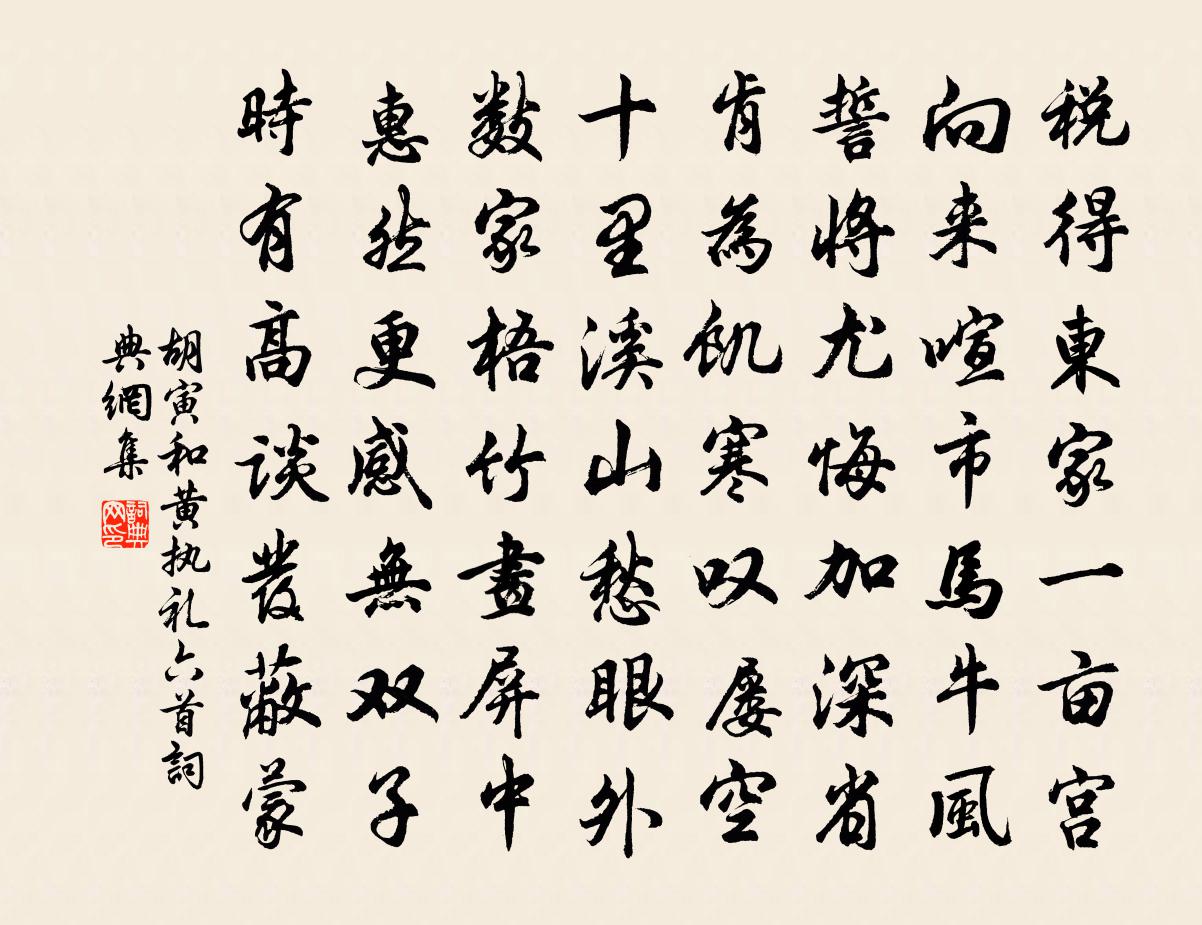 税得東家一亩宫
向来喧市馬牛風
誓将尤悔加深省
肯為飢寒叹屡空
十里溪山愁眼外
数家梧竹畫屏中
惠然更感無双子
時有高談發蔽蒙
胡寅和黄执礼六首詞
典網集
詞典网印